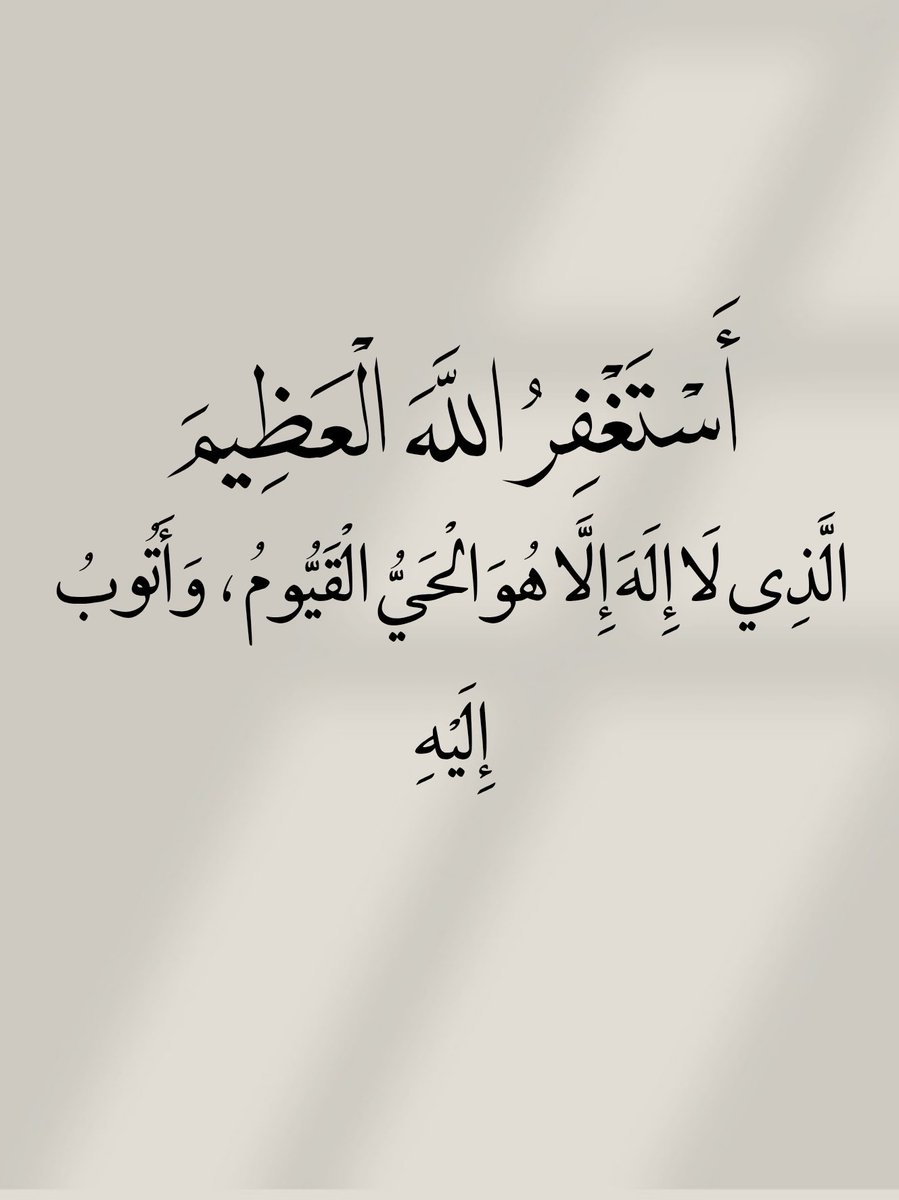 أَسْتَغْفِرُ اللَّهَ الْعَظِيمَ
الَّذِي لَا إِلَهَ إِلَّا هُوَ الْحَيُّ الْقَيُّومُ، وَأَتُوبُ
إِلَيْهِ